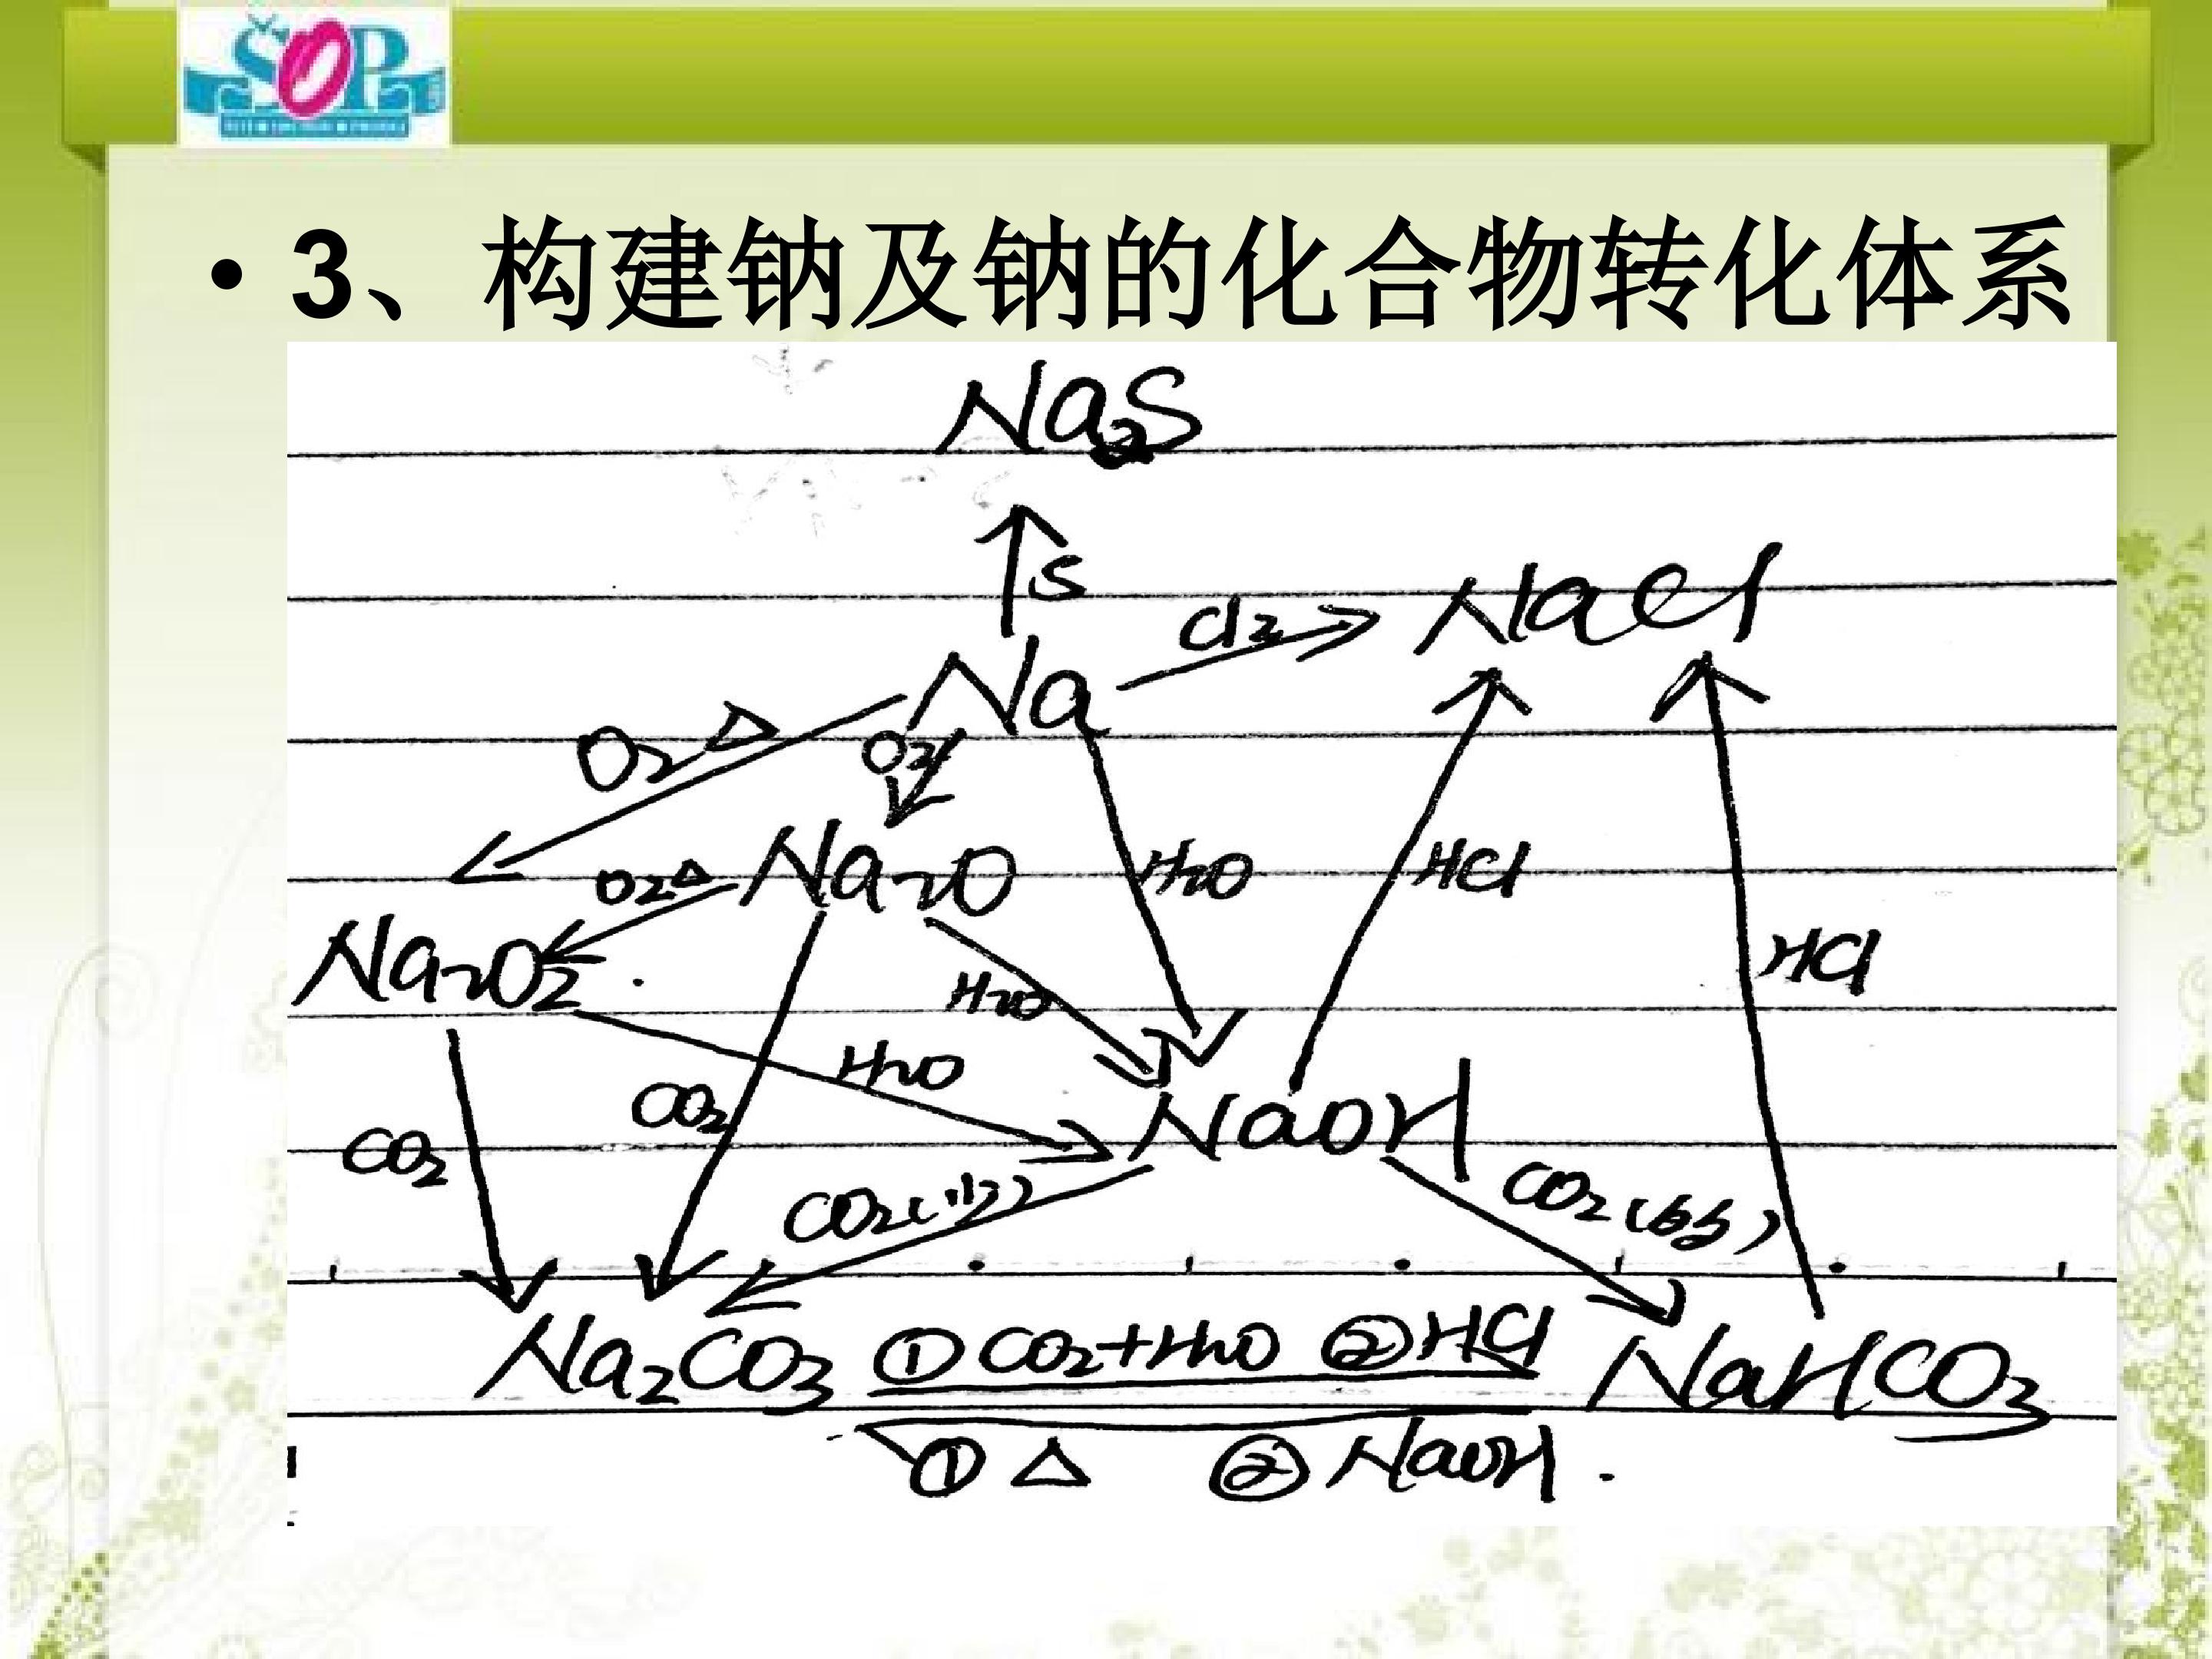 SOP
• 3、构建钠及钠的化合物转化体系
Na2S
S
Cl2 NaCl
Na
O2 △ O2
O2 △ Na2O H2O HCl
Na2O2 H2O HCl
H2O
CO2 CO2 NaOH
CO2(少) CO2(
Na2CO3 ①CO2+H2O ②HCl NaHCO3
①△ ②NaOH.